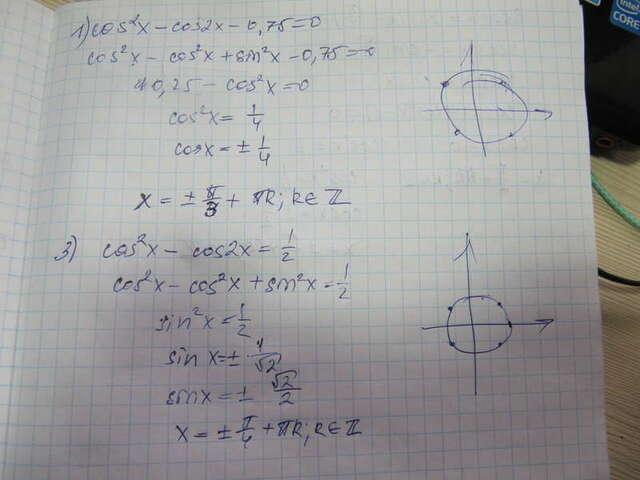 1) cos²x - cos2x - 0,75 = 0
cos²x - cos²x + sin²x - 0,75 = 0
0,25 - cos²x = 0
cos²x = 1/4
cosx = ± 1/4
x = ± π/3 + πk; k∈ℤ
3) cos²x - cos2x = 1/2
cos²x - cos²x + sin²x = 1/2
sin²x = 1/2
sin x = ± 1/√2
sinx = ± √2/2
x = ± π/4 + πk; k∈ℤ
intel
CORE